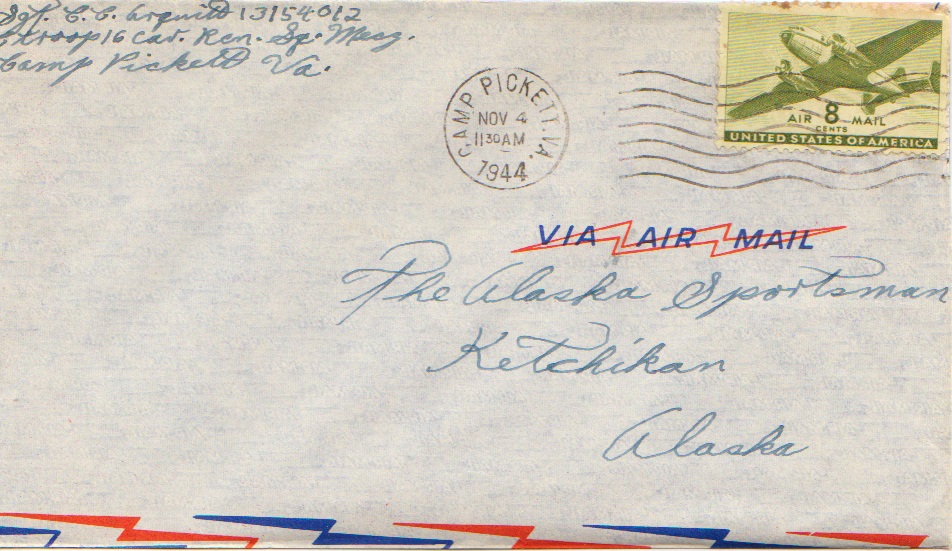 Sgt. C. C. Arquitt 13154012
C Troop 16 Cav. Rcn. Sq. Mecz.
Camp Pickett Va.
CAMP PICKETT. VA.
NOV 4
11 30 AM
1944
AIR 8 MAIL
CENTS
UNITED STATES OF AMERICA
VIA AIR MAIL
The Alaska Sportsman
Ketchikan
Alaska